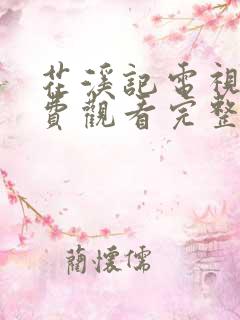 茳溪記電視
費觀看完整
藺懷儒